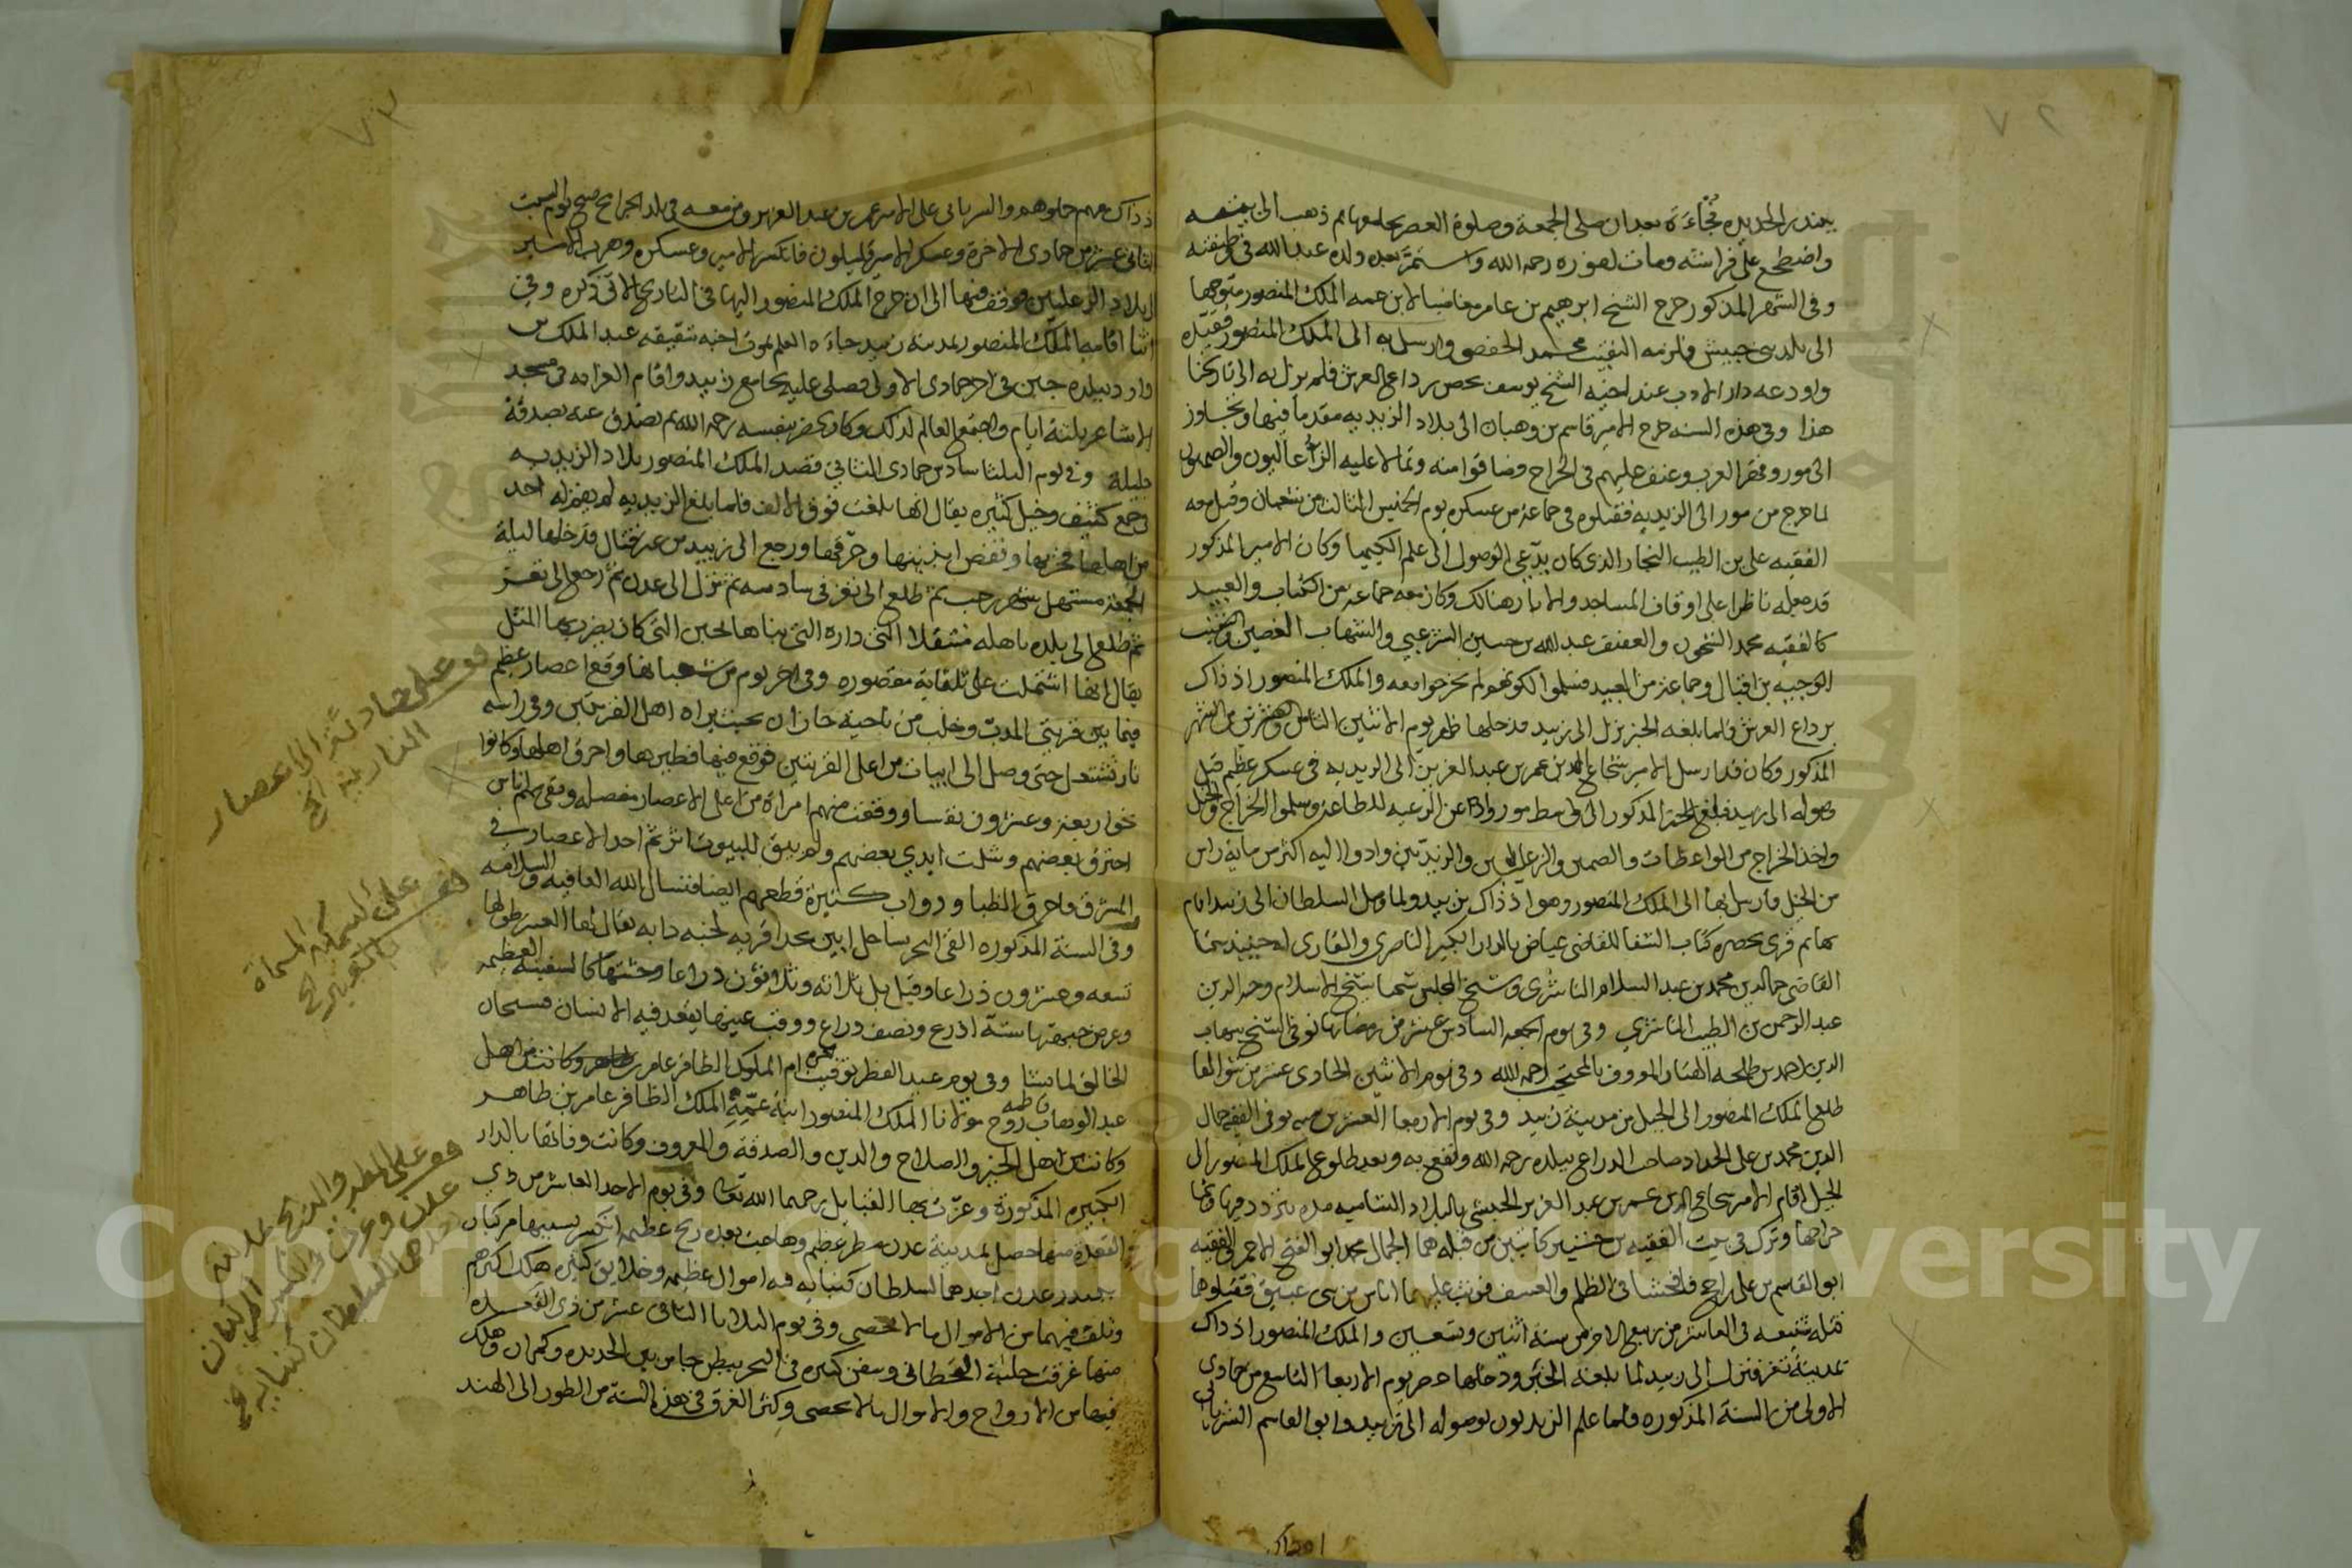 ٧٢
ببندر الحديدة فجاءة بعد ان صلى الجمعة وصلوة العصر بجامعها ثم ذهب الى بيته
واضطجع على فراشه ومات لفوره رحمه الله واستمر بعده ولده عبد الله في وظيفته
وفي الشهر المذكور خرج الشيخ ابرهيم بن عامر مغاضبا لابن عمه الملك المنصور متوجها
الى بلد بني حبيش فلزمه النقيب محمد الحفصي وارسل به الى الملك المنصور فقيده
واودعه دار الادب عند اخيه الشيخ يوسف بحصن رداع العرش فلم يزل به الى تاريخنا
هذا وفي هذه السنه خرج الامير قاسم بن وهبان الى بلاد الزيديه مقدما فيها وتجاوز
الى مور وفخر العرب وعنف عليهم في الخراج وضاقوا منه وتمالا عليه الزعليون والصميون
لما خرج من مور الى الزيديه فقتلوه في جماعة من عسكره يوم الخميس الثالث من شعبان وقتل معه
الفقيه على بن الطيب النجار الذي كان يدعي الوصول الى علم الكيميا وكان الامير المذكور
قد جعله ناظرا على اوقاف المساجد والابار هنالك وكان معه جماعة من الكتاب والعبيد
كالفقيه محمد النحوي والعفيف عبد الله بن حسين الشرعبي والشهاب الغصين والنقيب
الوجيه بن اقبال وجماعة من العبيد فسلموا لكونهم لم يخرجوا معه والملك المنصور اذ ذاك
برداع العرش فلما بلغه الخبر نزل الى زبيد فدخلها ظهر يوم الاثنين الثامن وعشرين من الشهر
المذكور وكان قد ارسل الامير شجاع الدين عمر بن عبد العزيز الى الزيديه في عسكر عظيم قبل
وصوله الى زبيد فبلغ الخبر المذكور الى واسط مور واذعن الرعيه للطاعة وسلموا الخراج والخيل
واخذ الخراج من الواعظات والصميين والزعليين والزيديين وادوا اليه اكثر من ماية راس
من الخيل فارسل بها الى الملك المنصور وهو اذ ذاك بزبيد ولما وصل السلطان الى زبيد اقام
بها ثم قرى بحضره كتاب الشفا للقاضي عياض بالدار الكبير الناصري والقارى له حينيذ شيخنا
القاضي جمال الدين محمد بن عبد السلام الناشري وشيخ المجلس شيخنا شيخ الاسلام وجيه الدين
عبد الرحمن بن الطيب الناشري وفي يوم الجمعه السادس عشر من رمضان توفي الشيخ شهاب
الدين احمد بن طلحه الهتار المعروف بالمحجب رحمه الله وفي يوم الاثنين الحادي عشر من شوال
طلع الملك المنصور الى الجبل من مدينة زبيد وفي يوم الاربعا العشرين منه توفي الفقيه جمال
الدين محمد بن على الحداد صاحب الدراع ببلده رحمه الله ونفع به وبعد طلوع الملك المنصور الى
الجبل اقام الامير شجاع الدين عمر بن عبد العزيز الحبيشي بالبلاد الشاميه مده يتردد فيها
خراجها وترك في بيت الفقيه بن حشيبر كاتبين من قبله هما الجمال محمد ابو الفتح الاحمر والفقيه
ابو القاسم بن على راجح فافحشا في الظلم والعسف فوثب عليهما اناس من بني عبيق فقتلوها
قتلة شنيعه في العاشر من ربيع الاخر من سنة اثنين وتسعين والملك المنصور اذ ذاك
بمدينة تعز فنزل الى زبيد لما بلغه الخبر ودخلها عصر يوم الاربعا التاسع من جمادى
الاولى من السنة المذكوره فلما علم الزيديون بوصوله الى زبيد وابو القاسم الشريانى
اذ ذاك
٧٣
ذ ذاك معهم حملوا هم والشرياني على الامير عمر بن عبد العزيز ومن معه في بلد الجرابح صبح يوم السبت
الثاني عشر من جمادى الاخرة وعسكر الامير قليلون فانكسر الامير وعسكره وهرب الامير
الى بلاد الزعليين فوقف فيها الى ان خرج الملك المنصور اليها في التاريخ الاتي ذكره وفي
اثنا اقامه الملك المنصور بمدينة زبيد جاءه العلم بموت اخيه شقيقه عبد الملك بن
داود ببلده جبن في اخر جمادى الاولى فصلى عليه بجامع زبيد واقام القرايه في مسجد
الاشاعر ثلثة ايام واجتمع العالم لذلك وكان يحضر بنفسه رحمه الله ثم تصدق عنه بصدقة
جليلة وفي يوم الثلثا سادس جمادى الثاني قصد الملك المنصور بلاد الزيديه
في جمع كثيف وخيل كثيره يقال انها بلغت فوق الالف فلما بلغ الزيديه لم يظفر له احد
من اهلها فخربها ونقض ابنيتها وحرقها ورجع الى زبيد من غير قتال فدخلها ليلة
الجمعة مستهل شهر رجب ثم طلع الى تعز في سادسه ثم نزل الى عدن ثم رجع الى تعز
ثم طلع الى بلده باهله منتقلا الى داره التى بناها لجبن التى كان يضرب بها المثل
يقال انها اشتملت على ثلثماية مقصوره وفي اخر يوم من شعبانها وقع اعصار عظيم
فيما بين قريتى المدب وخلب من ناحية جازان بحيث يراه اهل القريتين وفي راسه
نار تشتعل حتى وصل الى ابيات من اعلى القريتين فوقع فيها فطيرها واحرق اهلها وكانوا
نحو اربعة وعشرون نفسا ووقفت منهم امراة من اعلى الاعصار مفصله وبقى منهم ناس
احترق بعضهم وشلت ايدي بعضهم ولم يبق للبيوت اثر ثم اخذ الاعصار في
المشرق فاحرق الظبا ودواب كثيرة قطعهم ايضا فنسال الله العافيه والسلامه
وفي السنة المذكوره القى البحر بساحل ابين بحد اقريه لخبه دابه يقال لها العنبر طولها
تسعه وعشرون ذراعا وقيل بل ثلاثه وثلاثون ذراعا وجثتها كالسفينة العظيمه
وعرض جبهتها ستة اذرع ونصف ذراع ووقب عينها يقعد فيه الانسان فسبحان
الخالق لما يشا وفي يوم عيد الفطر توفيت حره ام الملوك الظافر عامر بن طاهر وكانت من اهل
عبد الوهاب فاطمه زوج مولانا الملك المنصور ابنة عمه الملك الظافر عامر بن طاهر
وكانت من اهل الخير والصلاح والدين والصدقة والمعروف وكانت وفاتها بالدار
الكبيره المذكورة وعزت بها القبايل رحمها الله تعالى وفي يوم الاحد العاشر من ذي
القعدة منها حصل بمدينة عدن مطر عظيم وهاجت بعده ريح عظيمه انكسر بسببها مركبان
ببندر عدن احدهما للسلطان كنبايه فيه اموال عظيمه وخلايق كثيره هلك اكثرهم
وتلف فيهما من الاموال ما لا يحصى وفي يوم الثلاثا الثاني عشر من ذي القعده
منها غرقت جلبة القحطاني وسفن كثيره في البحر ببطن جابر بين الحديده وكمران وهلك
فيها من الارواح والاموال ما لا يحصى وكثر الغرق في هذه السنة من الطور الى الهند
قف على حادثة الاعصار
النارية الخ
قف على السمكة المسماة
بالعنبر الخ
قف على المطر والريح بمدينة
عدن وغرق المركبان
احدهما للسلطان كنبايه الخ
Copyright © King Saud University